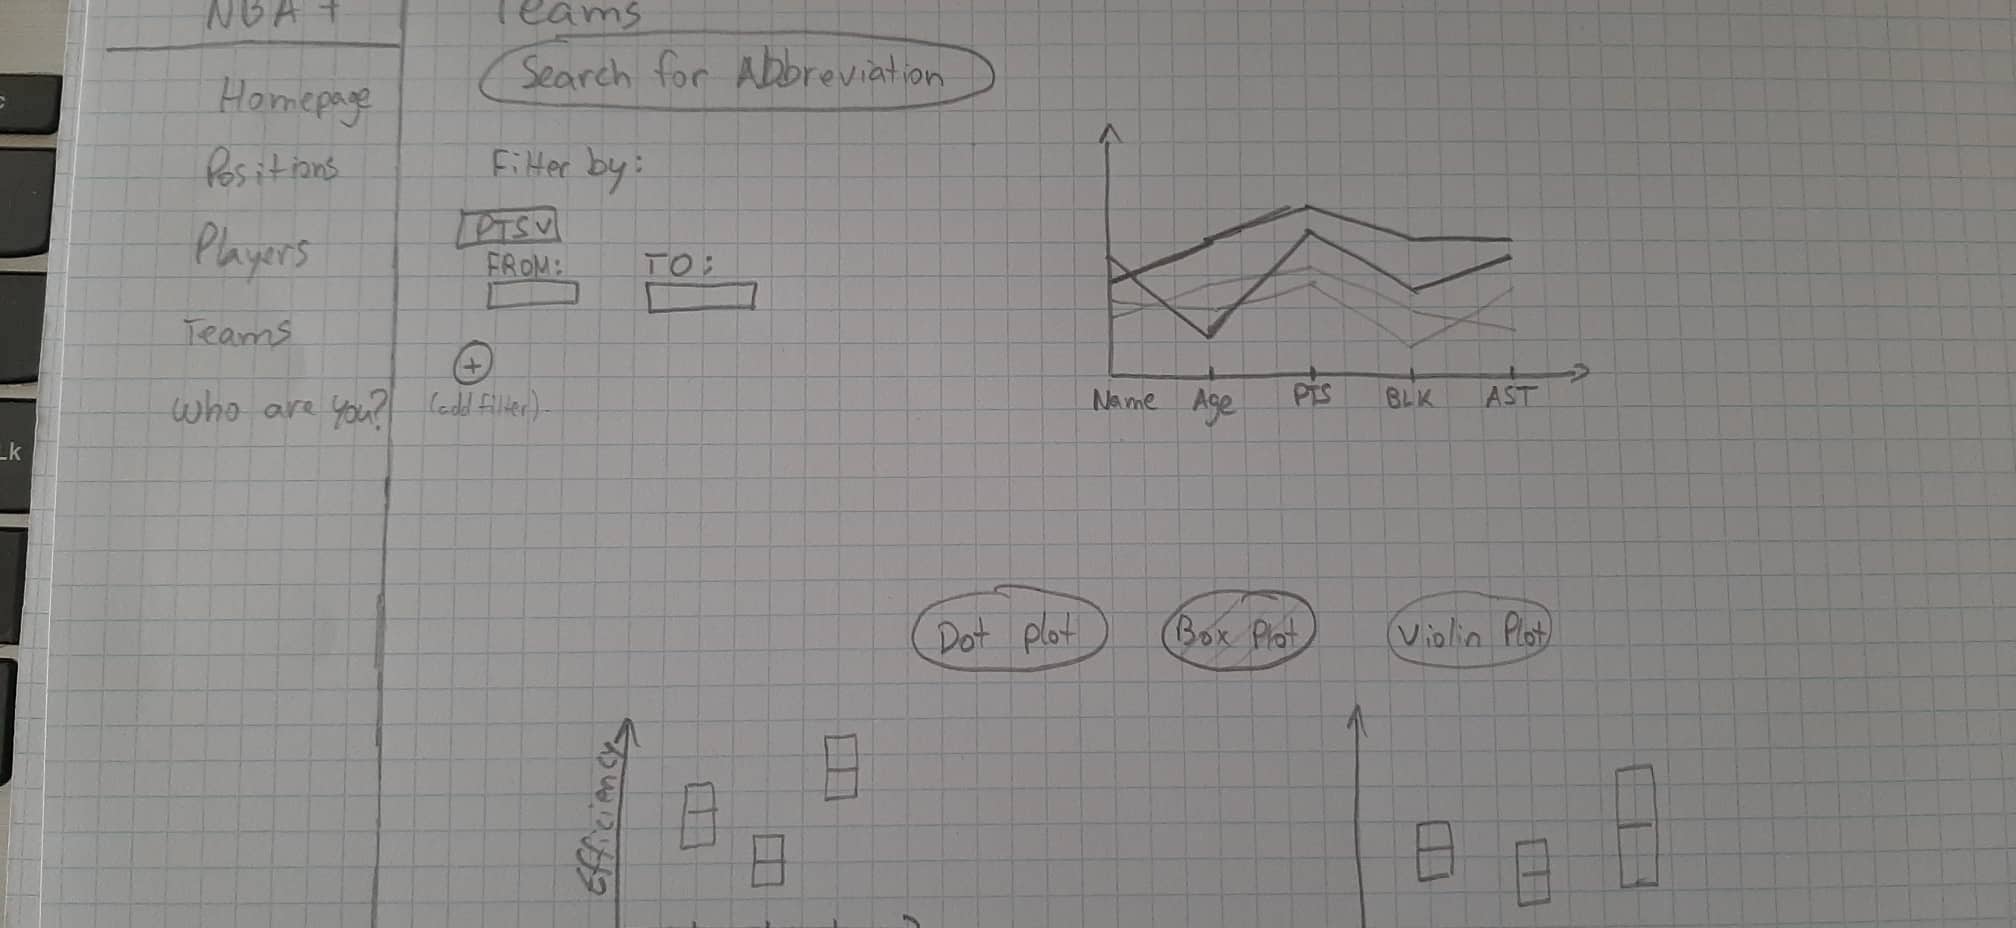 NBA +
Homepage
Positions
Players
Teams
Who are you?
Teams
Search for Abbreviation
Filter by:
PTS v
FROM: TO:
+
(add filter).
Name Age PTS BLK AST
Dot plot Box Plot Violin Plot
Efficiency
Lk